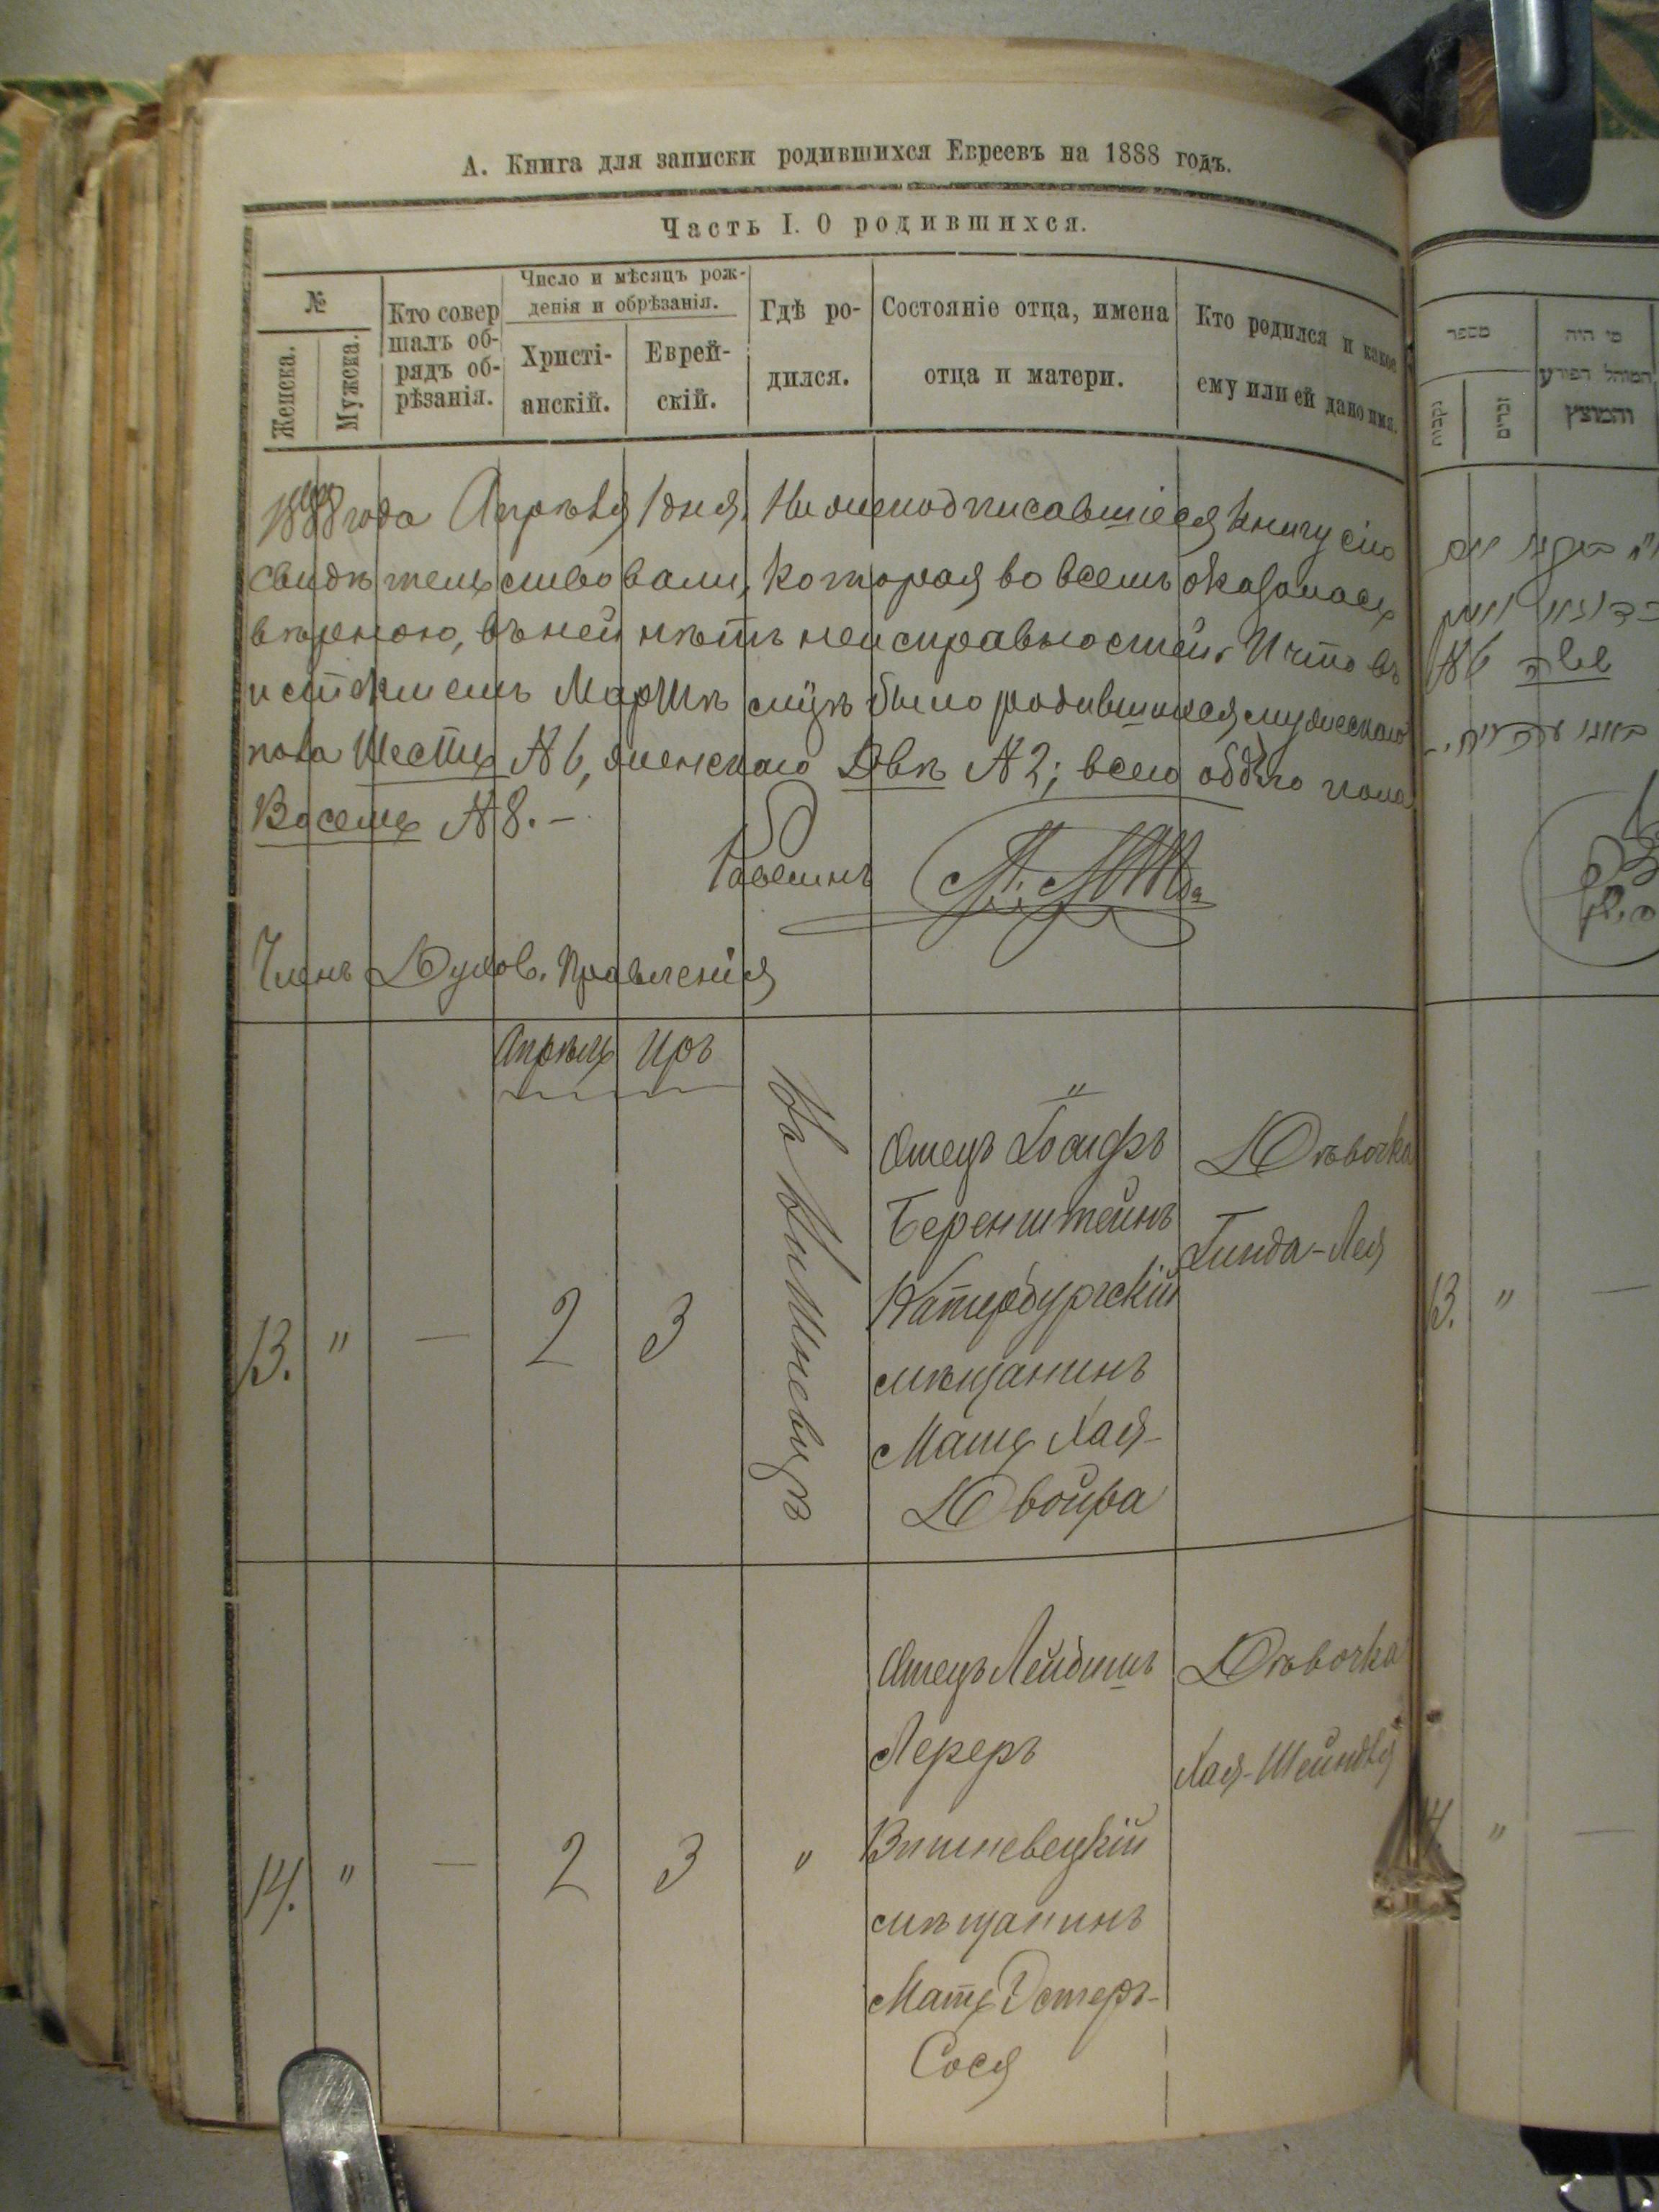 А. Книга для записки родившихся Евреевъ на 1888 годъ.
Часть I. О родившихся.
№
Женска.
Мужска.
Кто совер
шалъ об-
рядъ об-
рѣзанія.
Число и мѣсяцъ рож-
денія и обрѣзанія.
Христі-
анскій.
Еврей-
скій.
Гдѣ ро-
дился.
Состояніе отца, имена
отца и матери.
Кто родился и какое
ему или ей дано имя.
1888 года Апрѣля 1 дня, Нижеподписавшіеся книгу сію
свидѣтельствовали, которая во всемъ оказалась
вѣрною, въ ней нѣтъ неисправностей. И что въ
истекшемъ Мартѣ было родившихся мужескаго
пола Шесть № 6, женскаго Двѣ № 2; всего обоего пола
Восемь № 8. –
Раввинъ
Членъ Духов. Правленія
Апрѣль Iръ
13. " — 2 3
Въ Вишневцѣ
Отецъ Іосифъ
Беренштейнъ
Катербургскій
мѣщанинъ
Мать Хая-
Двойра
Дѣвочка
Гинда-Лея
14. " — 2 3 "
Отецъ Лейбишъ
Лереръ
Вишневецкій
мѣщанинъ
Мать Эстеръ-
Сося
Дѣвочка
Хая-Шейндля
מספר
נקבות
זכרים
מי היה
המוהל הפורע
והמוצץ
№ 6
13. " —
14. " —